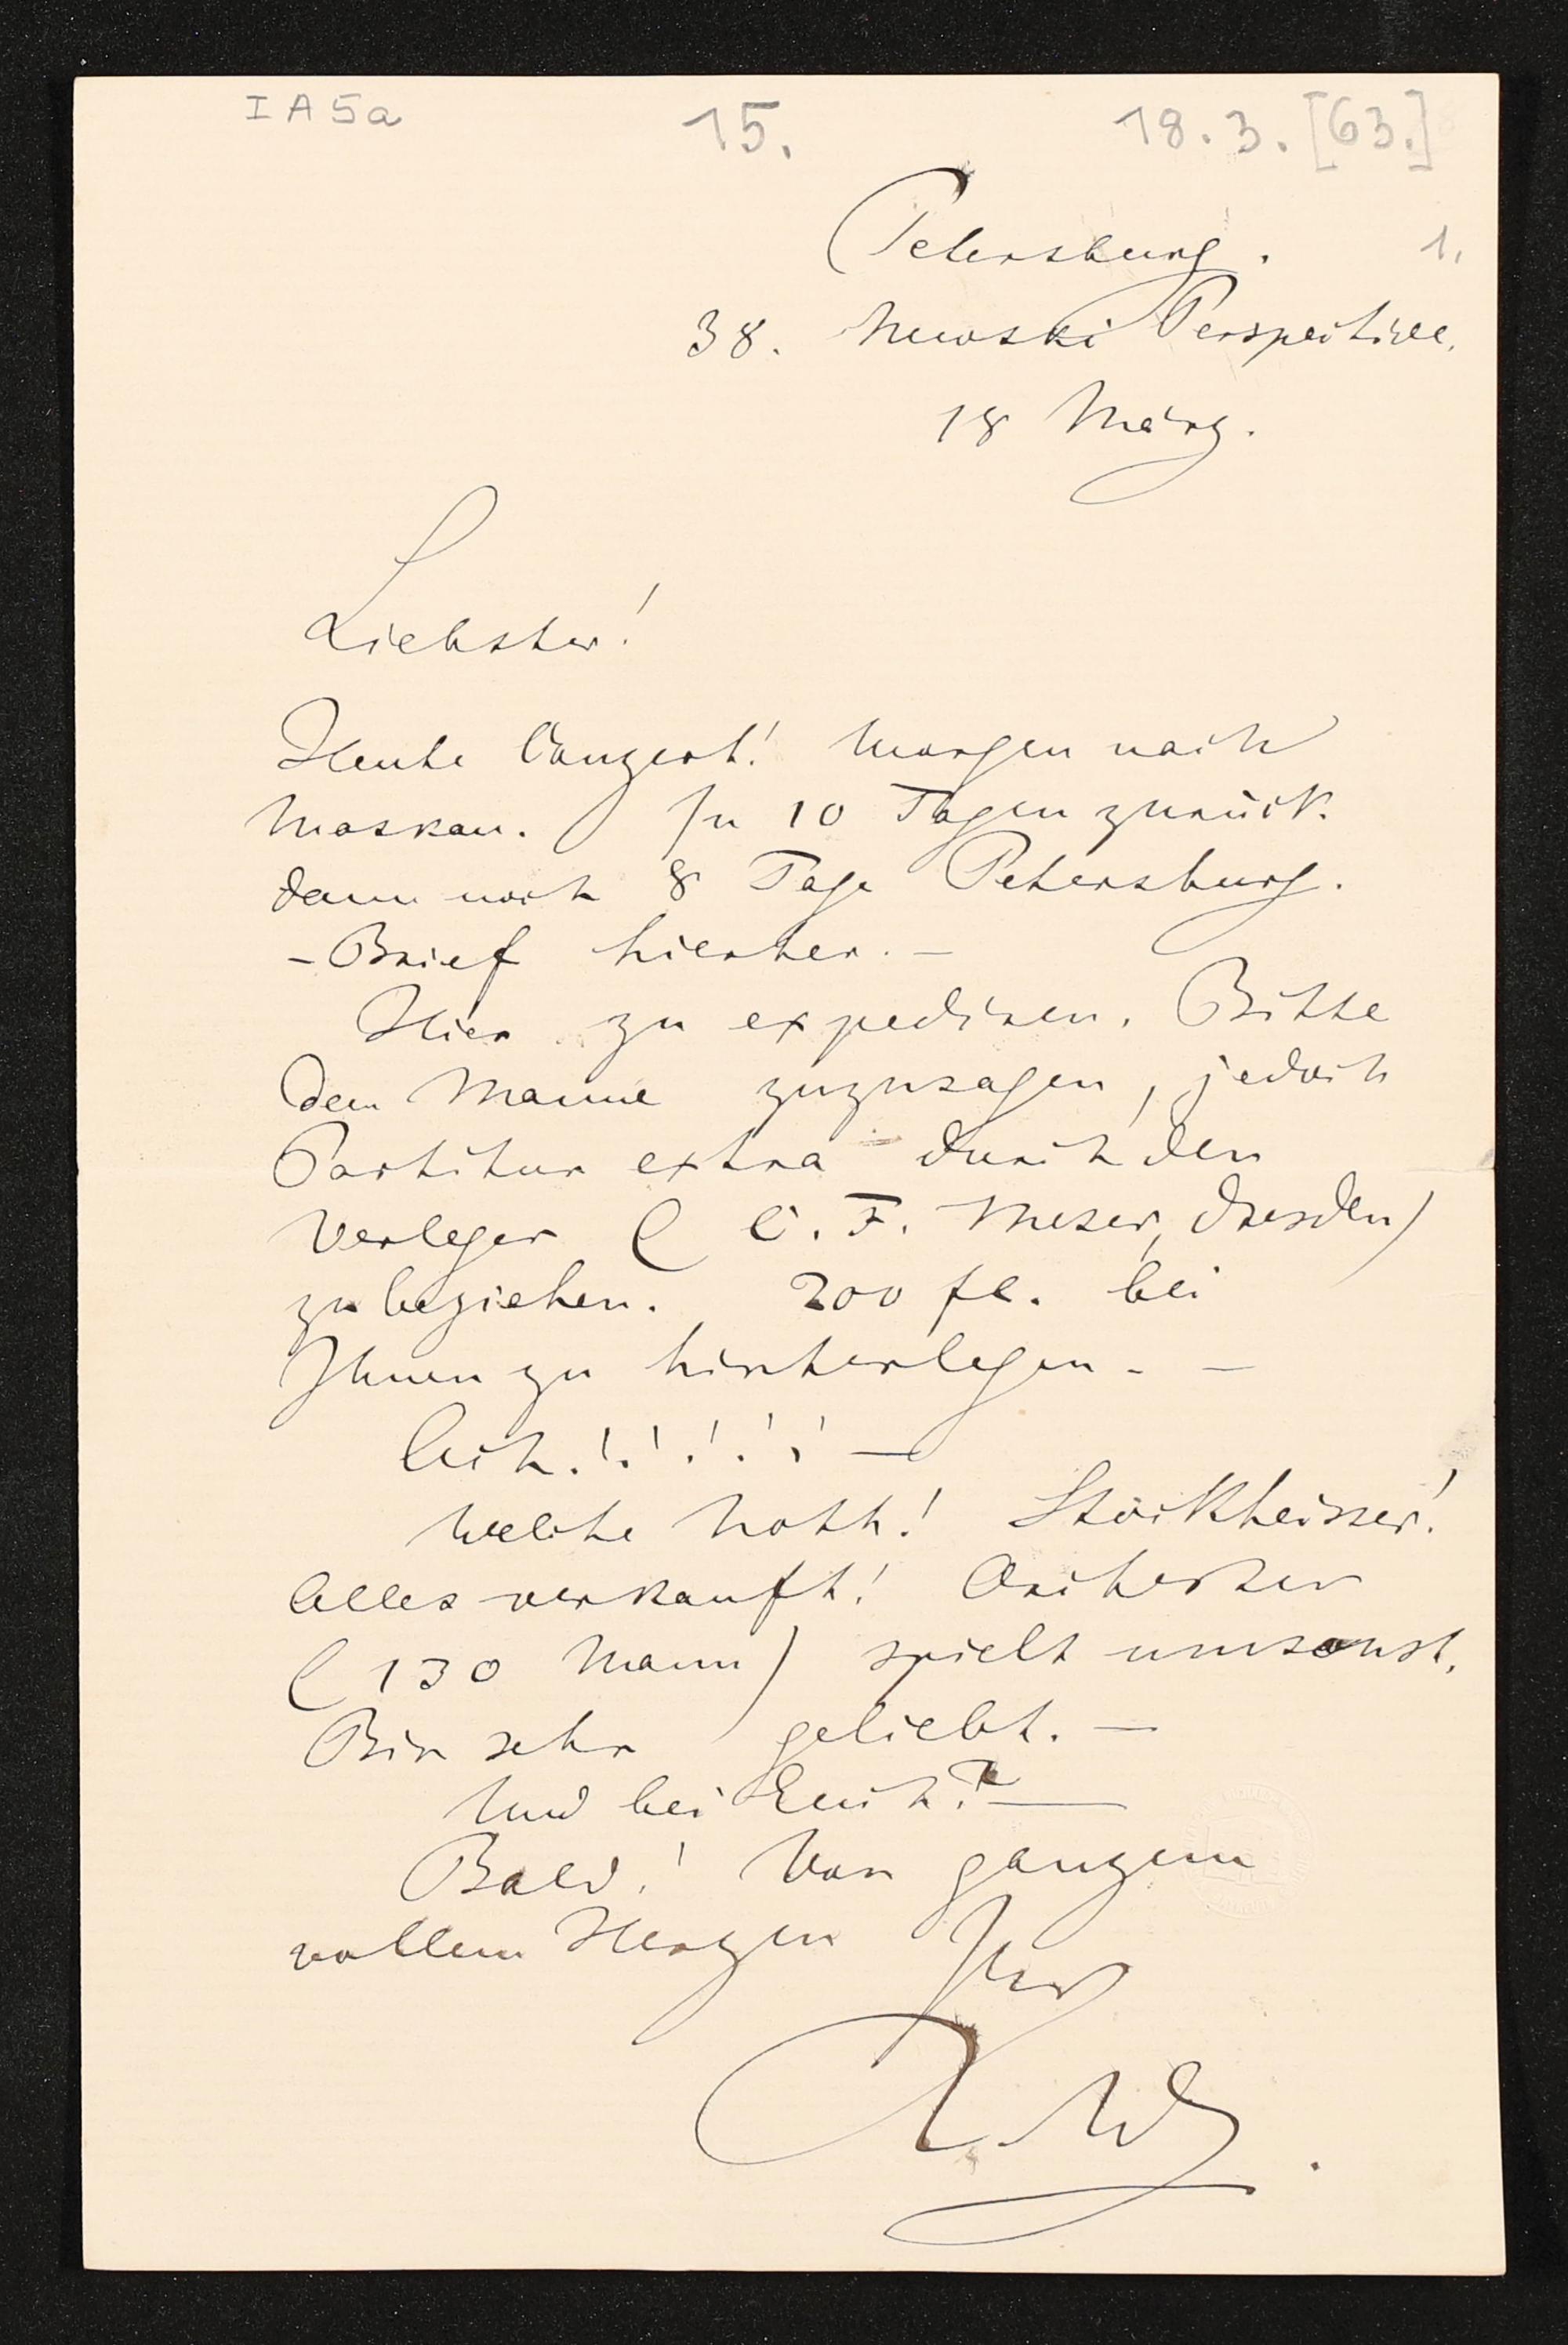 I A 5a 15. 18. 3. [63.]
Petersburg. 1.
38. Newski Perspective.
18 März.
Liebster!
Heute Conzert! Morgen nach
Moskau. In 10 Tagen zurück.
dann noch 8 Tage Petersburg.
- Brief hierher. -
Hier zu expediren. Bitte
dem Manne zuzusagen, jedoch
Partitur extra durch den
Verleger ( C. F. Meser, Dresden)
zu beziehen. 200 fl. bei
Ihnen zu hinterlegen. -
Ach!!!!! -
Welche Noth! Stockheiser!
Alles verkauft! Orchester
(130 Mann) spielt umsonst.
Bin sehr geliebt. -
Und bei Euch? -
Bald! Von ganzem
vollem Herzen Ihr
R. W.